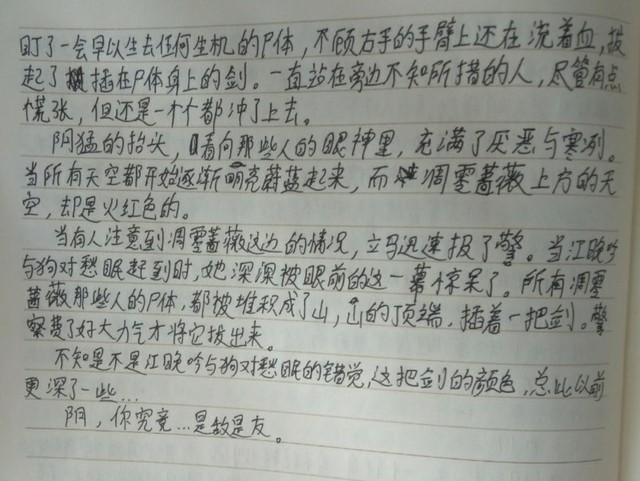 盯了一会早以失去任何生机的尸体，不顾右手的手臂上还在流着血，拔
起了插在尸体身上的剑。一直站在旁边不知所措的人，尽管有点
慌张，但还是一个个都冲了上去。
阴猛的抬头，看向那些人的眼神里，充满了厌恶与寒冽。
当所有天空都开始逐渐明亮蔚蓝起来，而凋零蔷薇上方的天
空，却是火红色的。
当有人注意到凋零蔷薇这边的情况，立马迅速报了警。当江晚吟
与狗对愁眠赶到时，她深深被眼前的这一幕惊呆了。所有凋零
蔷薇那些人的尸体，都被堆积成了山，山的顶端，插着一把剑。警
察费了好大力气才将它拔出来。
不知是不是江晚吟与狗对愁眠的错觉，这把剑的颜色，总比以前
更深了一些…
阴，你究竟…是敌是友。